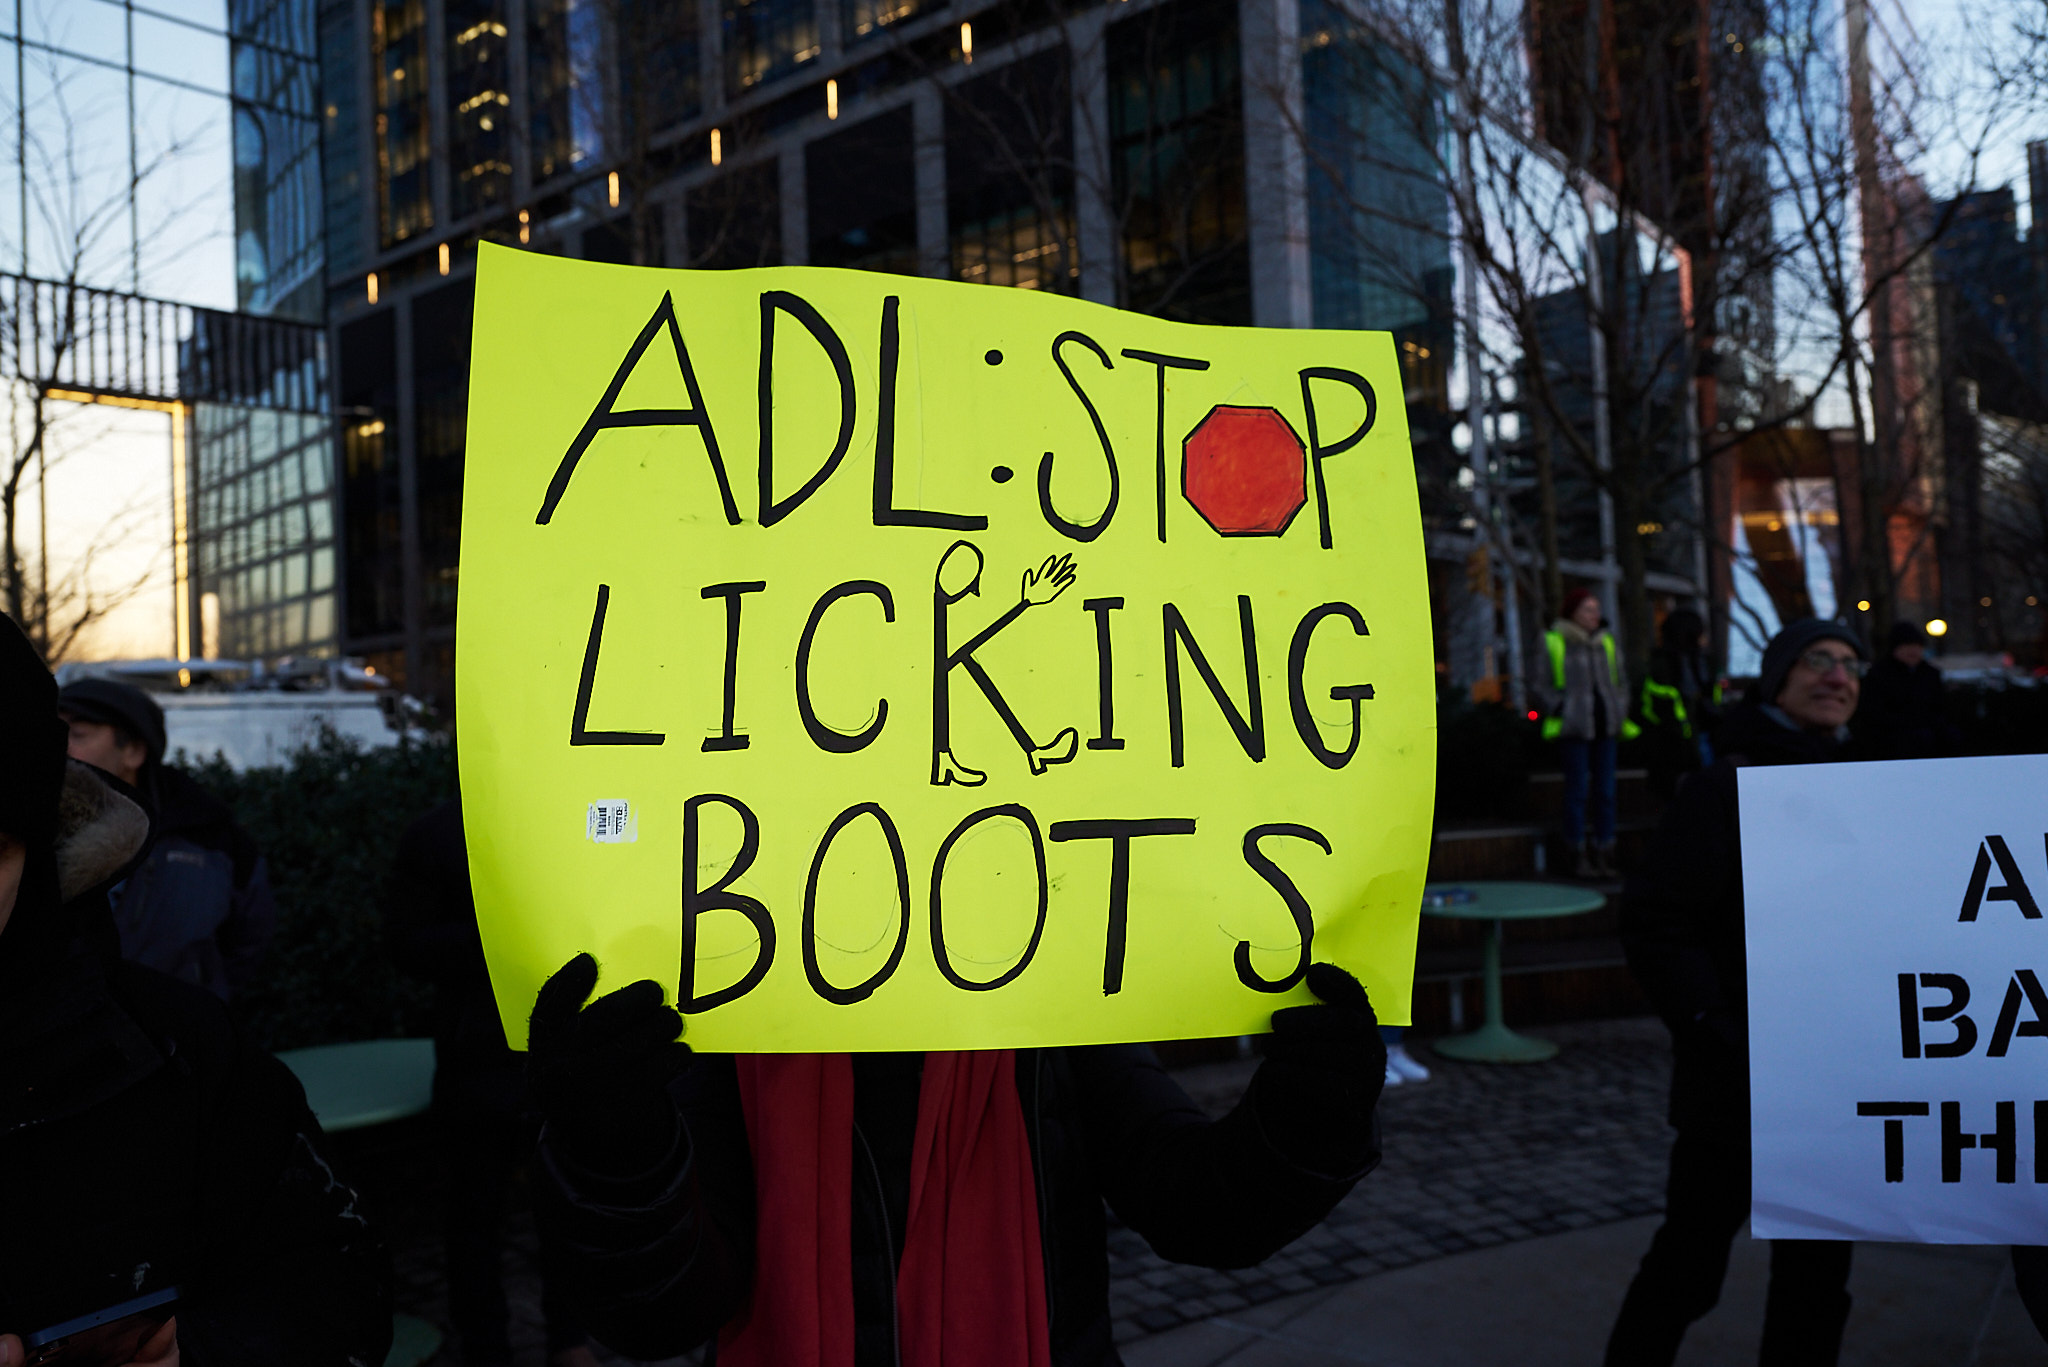 ADL: STOP
LICKING
BOOTS
BA
TH